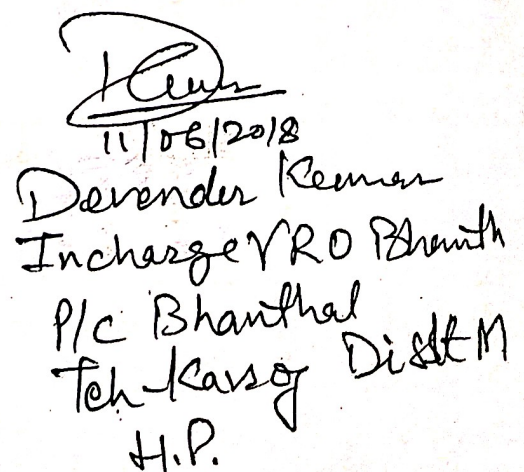 11/06/2018
Devender Kumar
Incharge VRO Bhanth
P/C Bhanthal
Teh-Karsog Distt M
H.P.